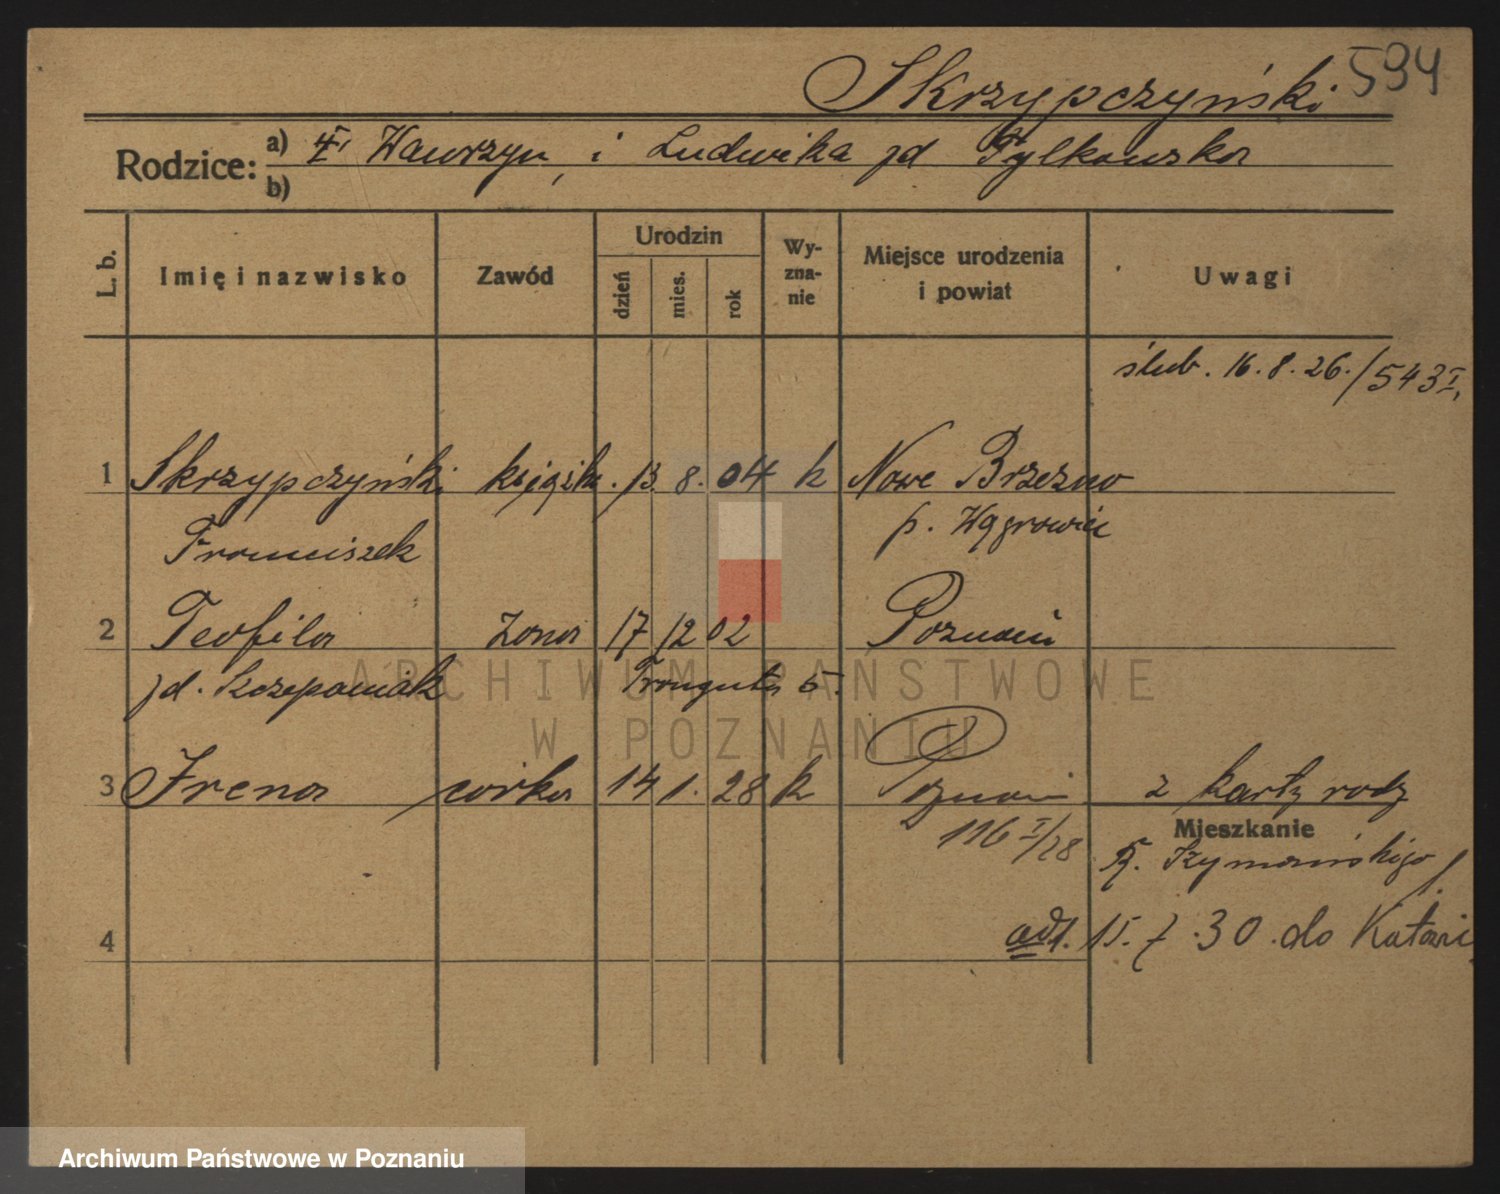 Skrzypczyński 594
Rodzice: a) Wawrzyn i Ludwika zd Tylkowska
b)
L. b. Imię i nazwisko Zawód Urodzin dzień mies. rok Wy-zna-nie Miejsce urodzenia i powiat Uwagi
ślub. 16.8.26./543 I,
1 Skrzypczyński 13. 8. 04 k Nowe Brzezno
Franciszek p. Wągrowiec
2 Teofila żona 17 12 02 Poznań
zd. Szczepaniak Traugutta 5.
3 Irena córka 14 1. 28 k Poznań z karty rodz
116 I/28
Mieszkanie
Szymańskiego 1.
4 adł. 15. 7. 30. do Katowic
ARCHIWUM PAŃSTWOWE
W POZNANIU
Archiwum Państwowe w Poznaniu